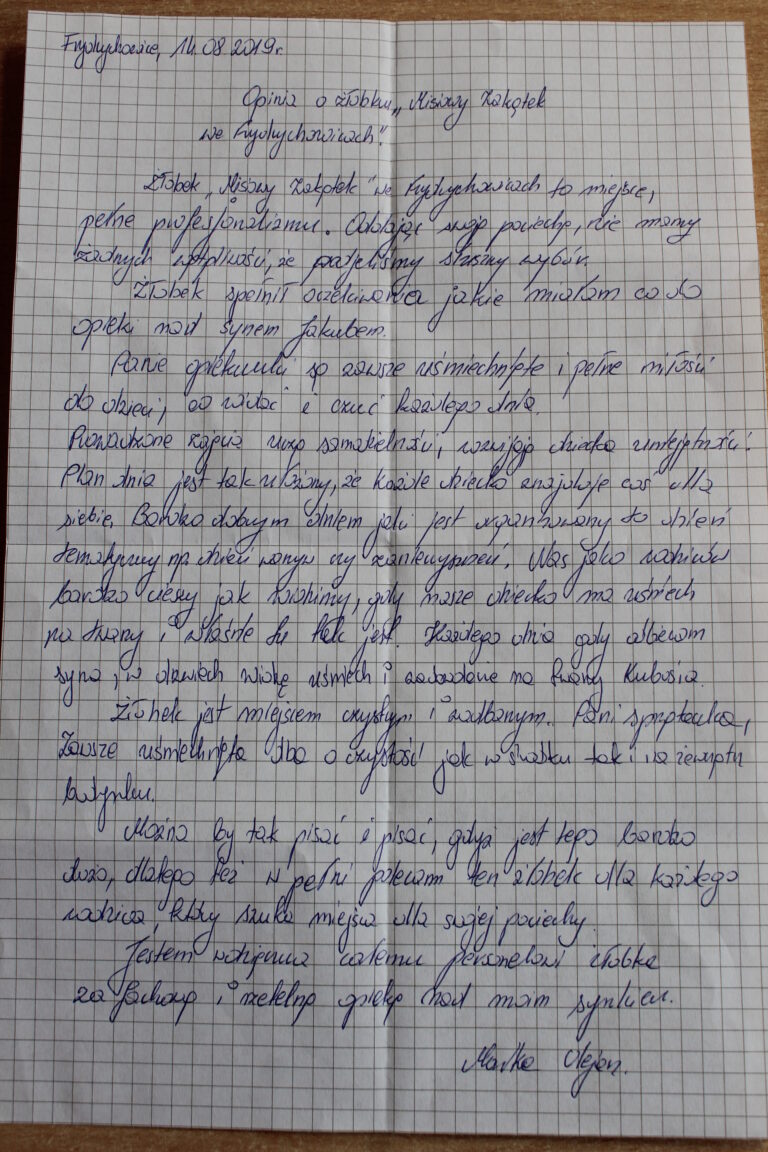 Frydrychowice, 14.08.2019r.
Opinia o żłobku „Misiowy Zakątek
we Frydrychowicach".
Żłobek „Misiowy Zakątek" we Frydrychowicach to miejsce,
pełne profesjonalizmu. Oddając swoją pociechę, nie mamy
żadnych wątpliwości, że podjęliśmy słuszny wybór.
Żłobek spełnił oczekiwania jakie miałam co do
opieki nad synem Jakubem.
Panie opiekunki są zawsze uśmiechnięte i pełne miłości
do dzieci, co widać i czuć każdego dnia.
Prowadzone zajęcia uczą samodzielności, rozwijają dziecka umiejętności.
Plan dnia jest tak ułożony, że każde dziecko znajduje coś dla
siebie. Bardzo dobrym dniem jaki jest organizowany to dzień
tematyczny np. dzień warzyw czy. Nas jako rodziców
bardzo cieszy jak widzimy, gdy nasze dziecko ma uśmiech
na twarzy i właśnie tu tak jest. Każdego dnia gdy odbieram
syna, w drzwiach widzę uśmiech i zadowolenie na twarzy Kubusia.
Żłobek jest miejscem czystym i zadbanym. Pani sprzątaczka,
zawsze uśmiechnięta dba o czystość jak w środku tak i na zewnątrz
budynku.
Można by tak pisać i pisać, gdyż jest tego bardzo
dużo, dlatego też w pełni polecam ten żłobek dla każdego
rodzica, który szuka miejsca dla swojej pociechy.
Jestem wdzięczna całemu personelowi żłobka
za fachową i rzetelną opiekę nad moim synkiem.